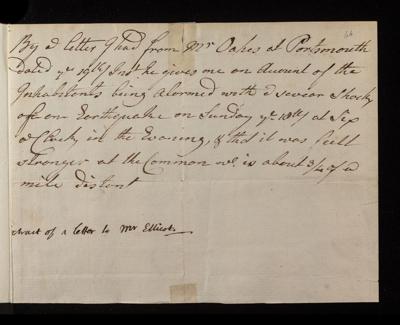 64
By a letter I had from Mr Oakes at Portsmouth
dated ye 19th Inst. he gives me an Acount of the
Inhabitants being alarmed with a sevear Shock
off an Earthquake on Sunday ye 18th at Six
o Clock in the Evening, & that it was felt
stronger at the Common wc. is about 3/4 of a
mile distant
tract of a letter to Mr Ellicot